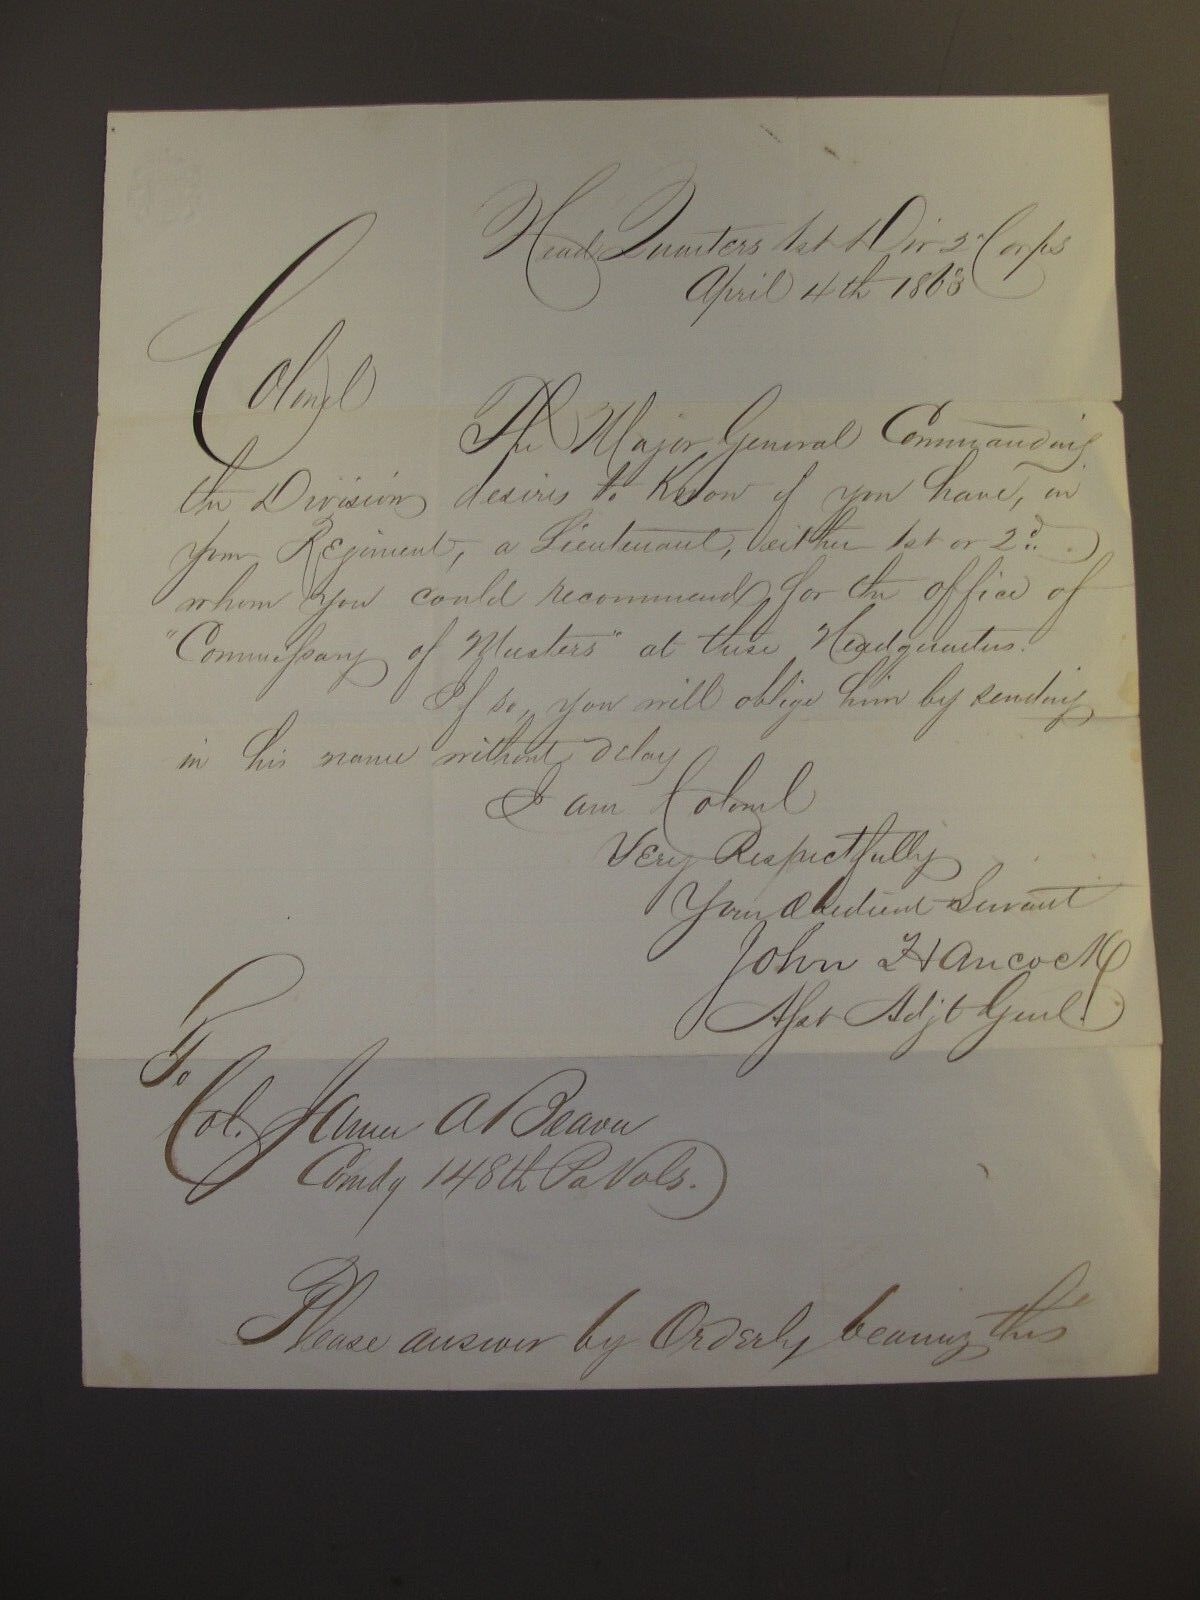 Head Quarters 1st Div 2d Corps
April 4th 1863
Colonel
The Major General Commanding
the Division desires to Know if you have, in
your Regiment, a Lieutenant, either 1st or 2d.
whom you could recommend for the office of
"Commissary of Musters" at these Headquarters.
If so, you will oblige him by sending
in his name without delay
I am Colonel
Very Respectfully
Your Obedient Servant
John Hancock
Asst Adjt Genl.
To
Col. James A Beaver
Comdg 148th Pa Vols.
Please answer by Orderly bearing this